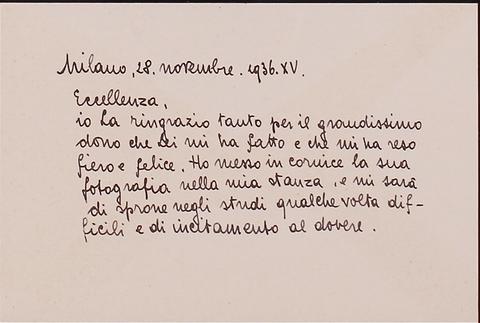 Milano, 28. novembre. 1936. XV.
Eccellenza,
io La ringrazio tanto per il grandissimo
dono che Lei mi ha fatto e che mi ha reso
fiero e felice. Ho messo in cornice la sua
fotografia nella mia stanza, e mi sarà
di sprone negli studi qualche volta dif-
ficili e di incitamento al dovere.